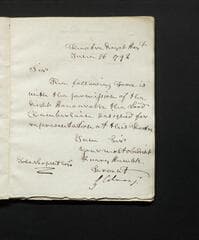 Theatre Royal Hay't
June 16 1796
Sir
The following Farce is
with the permission of the
Right Honourable the Lord
Chamberlain designed for
representation at this Theatre
I am Sir
Your most obedient
Humble
Servant